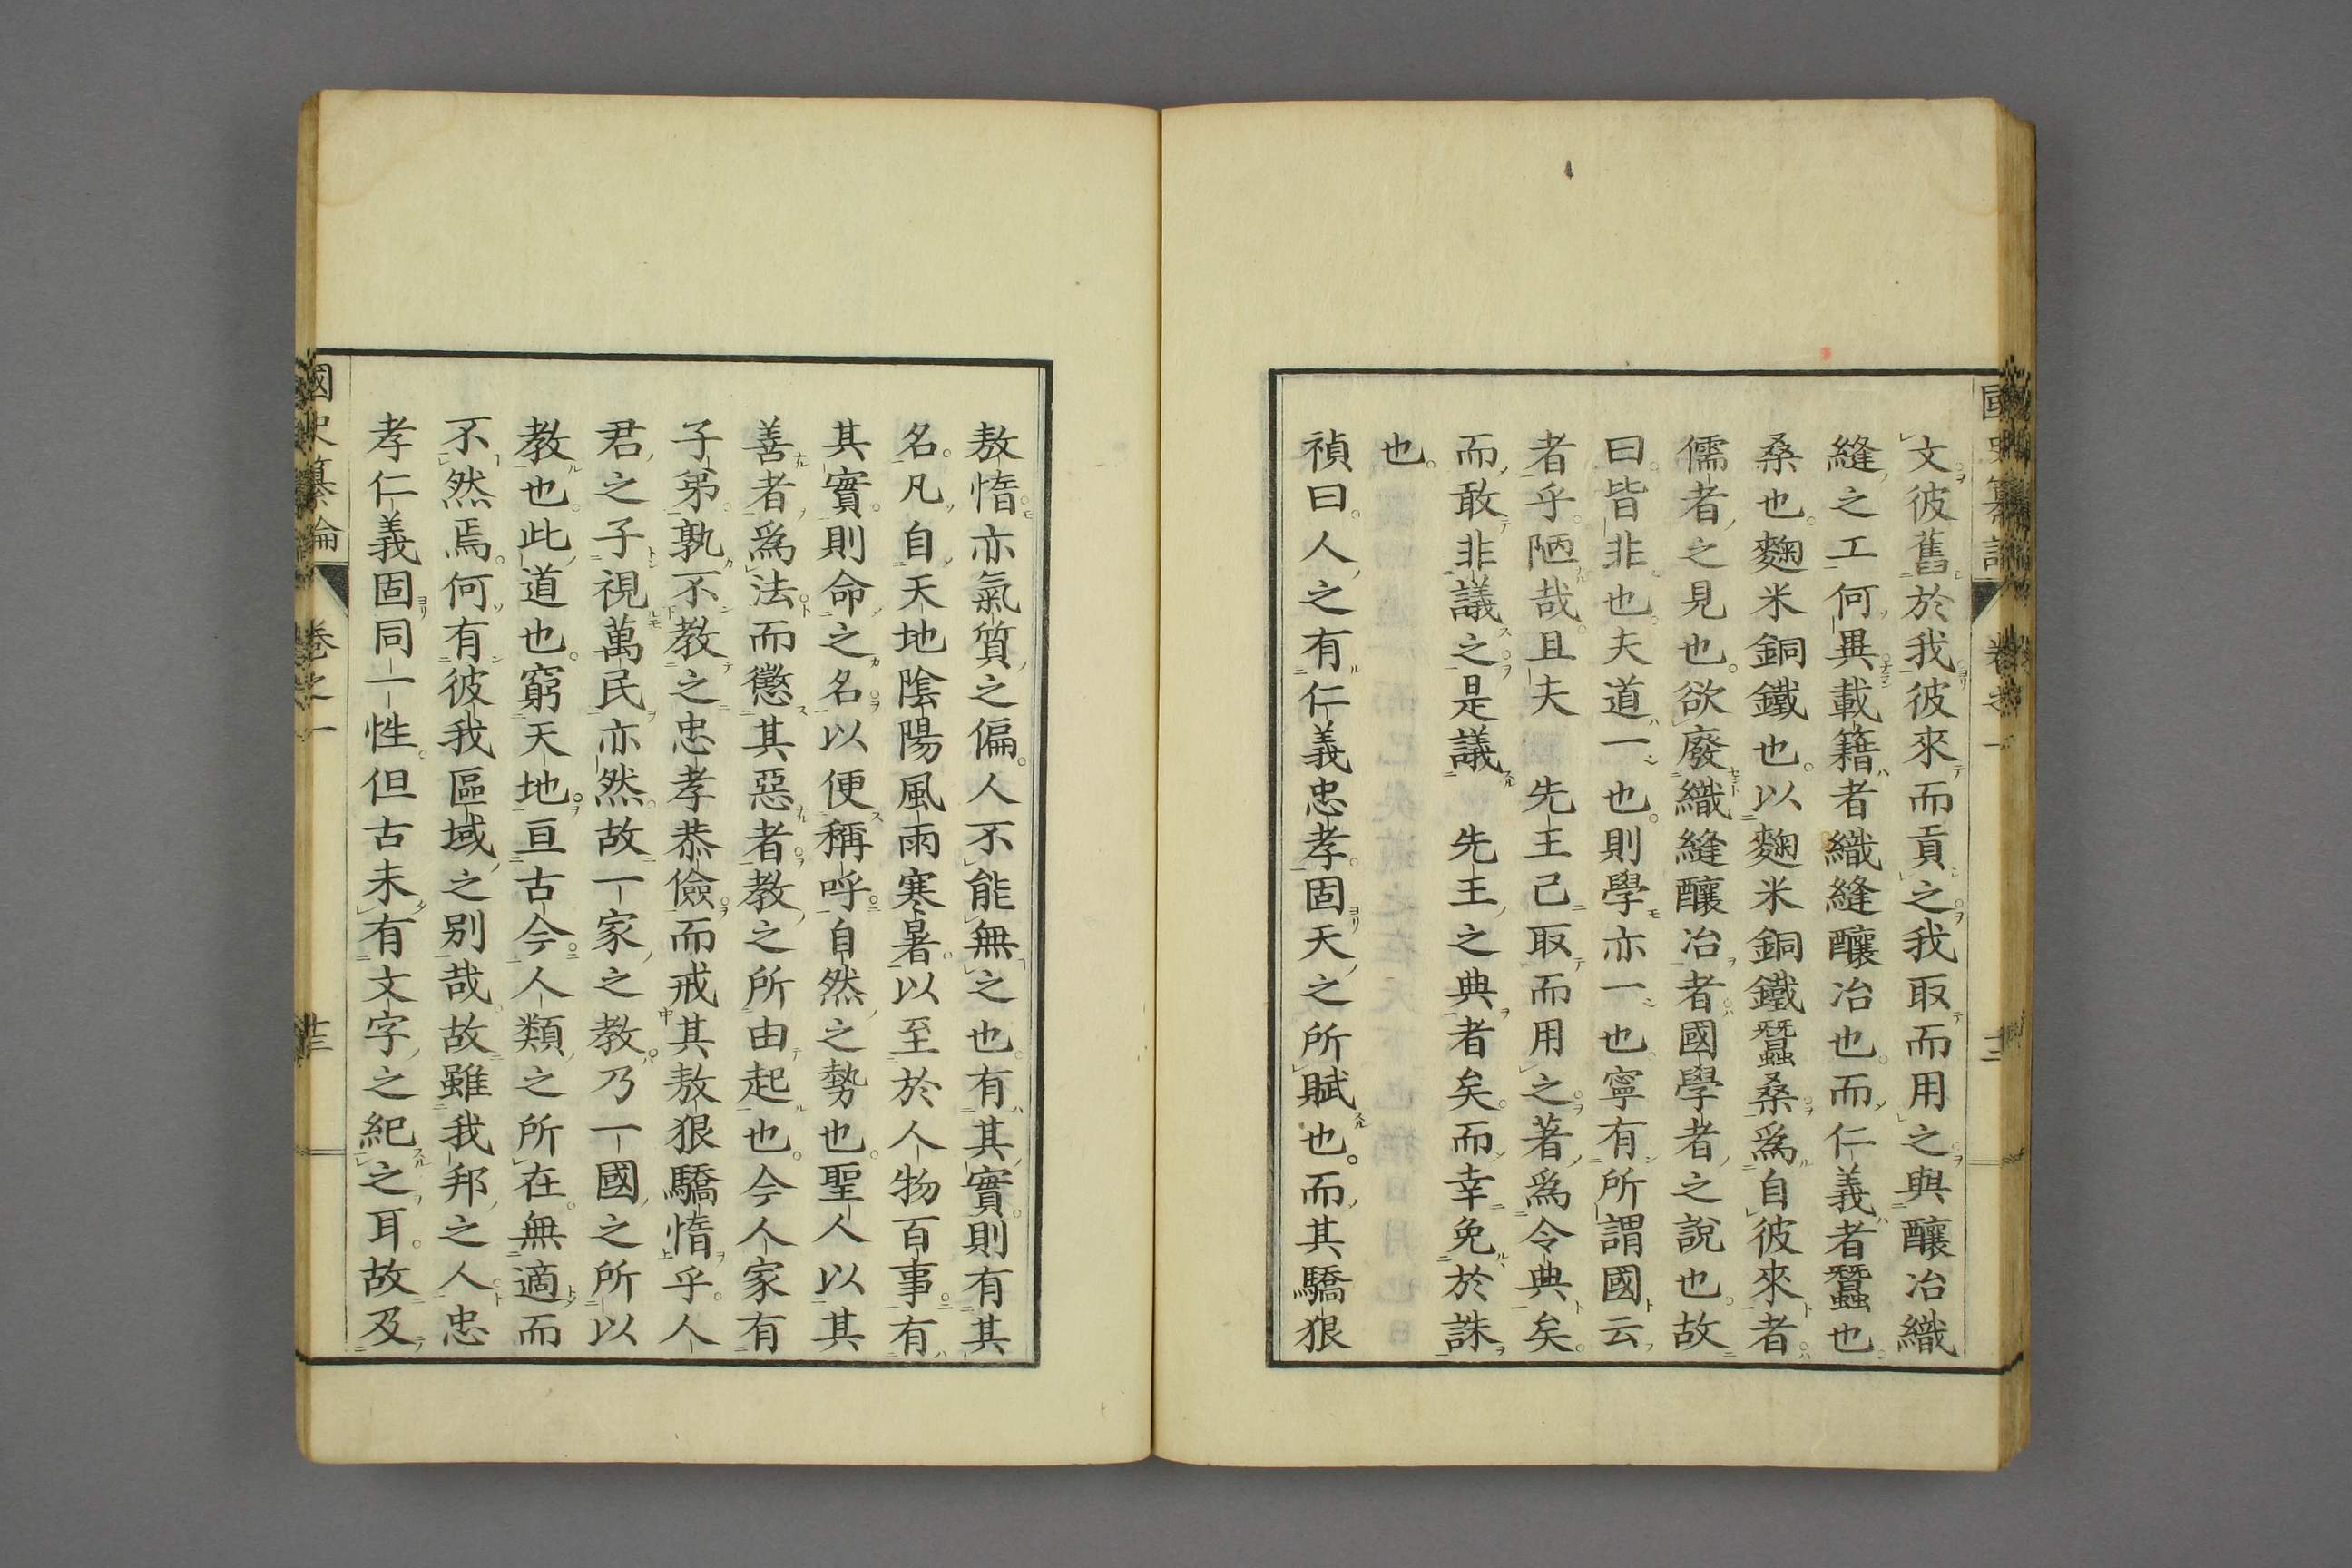 國史纂論 卷之一 十二
文彼舊於我彼來而貢之我取而用之與釀冶織
縫之工何異載籍者織縫釀冶也而仁義者蠶也
桑也麴米銅鐵也以麴米銅鐵蠶桑爲自彼來者
儒者之見也欲廢織縫釀冶者國學者之說也故
曰皆非也夫道一也則學亦一也寧有所謂國云
者乎陋哉且夫 先王已取而用之著爲令典矣
而敢非議之是議 先王之典者矣而幸免於誅
也
禎曰人之有仁義忠孝固天之所賦也而其驕狠
敖惰亦氣質之偏人不能無之也有其實則有其
名凡自天地陰陽風雨寒暑以至於人物百事有
其實則命之名以便稱呼自然之勢也聖人以其
善者爲法而懲其惡者教之所由起也今人家有
子弟孰不教之忠孝恭儉而戒其敖狠驕惰乎人
君之子視萬民亦然故一家之教乃一國之所以
教也此道也窮天地亘古今人類之所在無適而
不然焉何有彼我區域之別哉故雖我邦之人忠
孝仁義固同一性但古未有文字之紀之耳故及
國史纂論 卷之一 十三